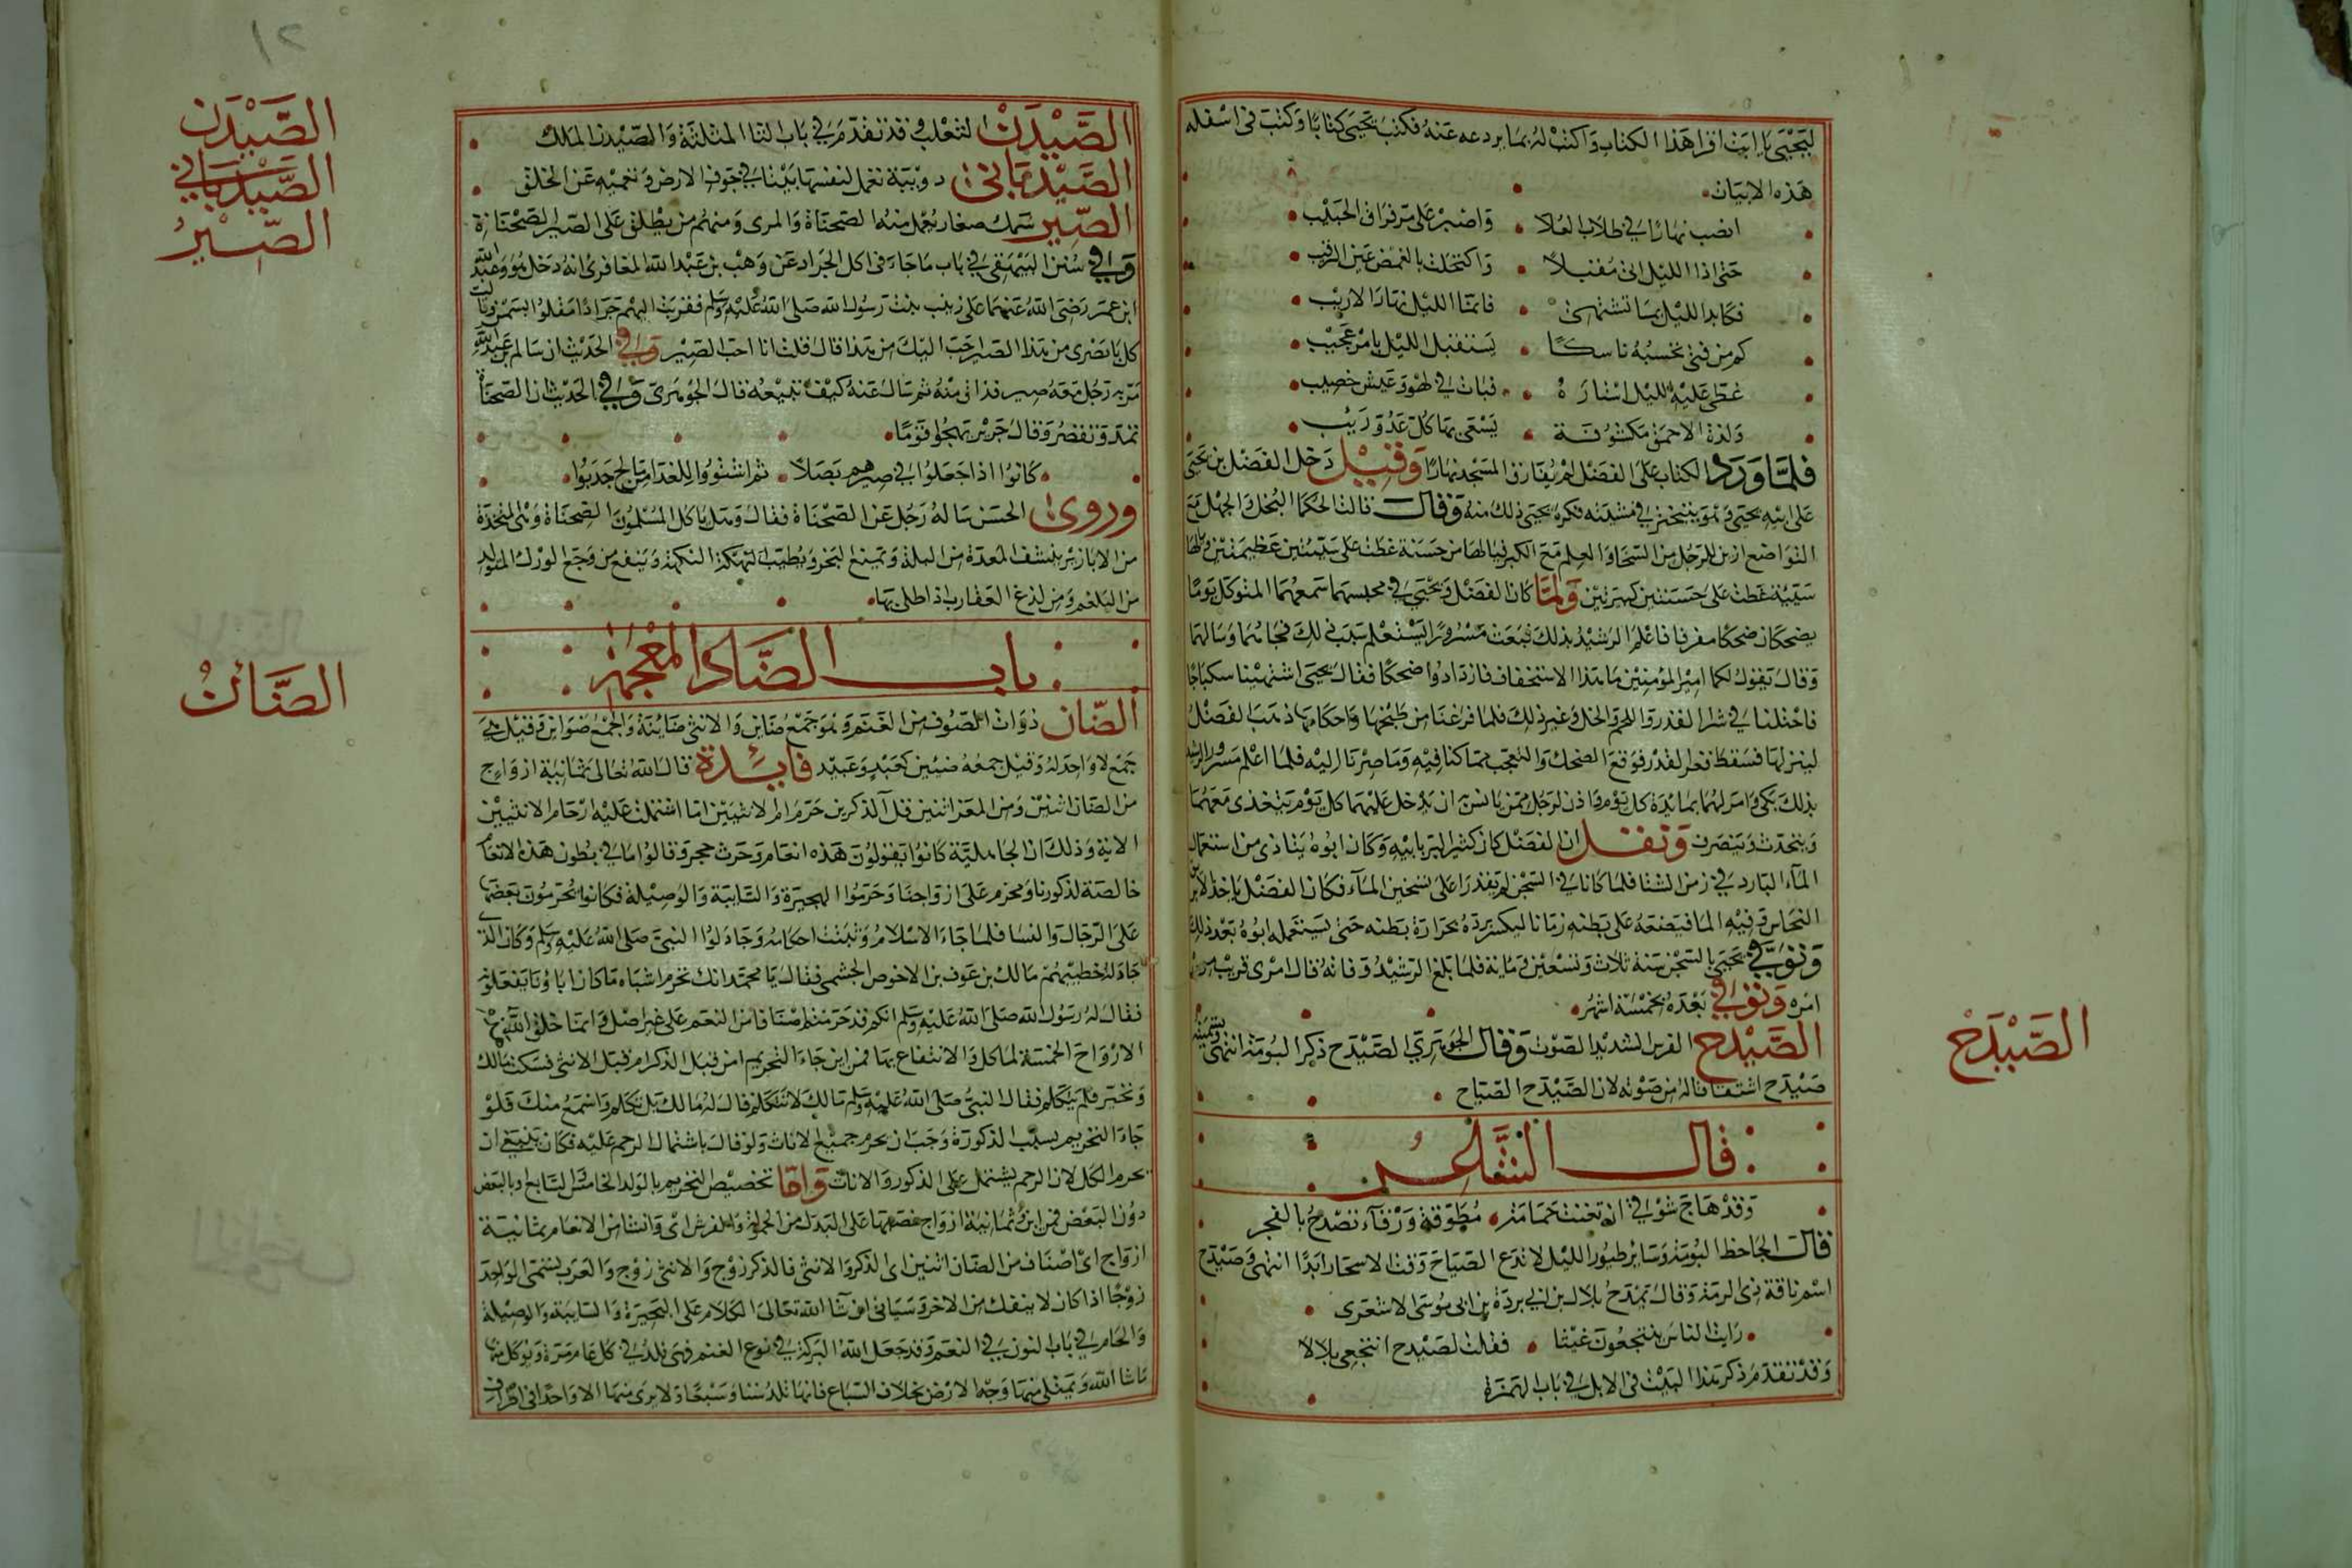 ليحيى يا ابت اقرا هذا الكتاب واكتب له بما يردعه عنه فكتب يحيى كتابا وكتب في اسفله
هذه الابيات
انصب نهارا في طلاب العلا واصبر على مر فراق الحبيب
حتى اذا الليل اتى مقبلا واكتحلت بالغمض عين الرقيب
فكابد الليل بما تشتهى فانما الليل نهار الاريب
كم من فتى تحسبه ناسكا يستقبل الليل بامر عجيب
غطى عليه الليل استاره فبات في لهو وعيش خصيب
ولذة الاحمق مكشوفة يسعى بها كل عدو رقيب
فلما ورد الكتاب على الفضل لم يفارق المسجد نهارا وقيل دخل الفضل بن يحيى
على ابيه يحيى وهو يتبختر في مشيته فكره يحيى ذلك منه وقال قالت الحكما البخل والجهل مع
التواضع ازين للرجل من السخا والعلم مع الكبر فيا لها من حسنة غطت على سيئتين عظيمتين ويا لها
سيئة غطت على حسنتين كبيرتين ولما كان الفضل ويحيى في محبسهما سمعهما المتوكل يوما
يضحكان ضحكا مفرطا فاعلم الرشيد بذلك فبعث مسرورا يستعلم سبب ذلك فجاهما وسالهما
وقال يقول لكما امير المؤمنين ما هذا الاستخفاف فازدادوا ضحكا فقال يحيى اشتهينا سكباجا
فاحتلنا في شرا القدر واللحم والخل وغير ذلك فلما فرغنا من طبخها واحكامها ذهب الفضل
لينزلها فسقط قعر القدر فوقع الضحك والتعجب مما كنا فيه وما صرنا اليه فلما اعلم مسرور الرشيد
بذلك بكى وامر لهما بمائدة كل يوم واذن لرجل ممن يانسن ان يدخل عليهما كل يوم يتغذى معهما
ويتحدث وينصرف ونقل ان الفضل كان كثير البر بابيه وكان ابوه يتاذى من استعمال
الماء البارد في زمن الشتا فلما كانا في السجن لم يقدرا على تسخين الماء فكان الفضل ياخذ الابريق
النحاس وفيه الما فيضعه على بطنه زمانا ليكسر برده بحرارة بطنه حتى يستعمله ابوه بعد ذلك
وتوفي يحيى بالسجن سنة ثلاث وتسعين وماية فلما بلغ الرشيد وفاته قال امرى قريب من
امره وتوفي بعده بخمسة اشهر
الصيدح الفرس الشديد الصوت وقال الجوهري الصيدح ذكر البومة انتهى وتسميته
صيدح اشتقاقا له من صوته لان الصيدح الصياح
الصيدح
قال الشاعر
وقد هاج شوقي ان تغنت حمامة مطوقة ورقاء تصدح بالفجر
قال الجاحظ البومة وسائر طيور الليل لا تدع الصياح وقت الاسحار ابدا انتهى وصيدح
اسم ناقة ذي الرمة وقال يمدح بلال بن ابي بردة بن ابي موسى الاشعرى
رايت الناس ينتجعون غيثا فقلت لصيدح انتجعي بلالا
وقد تقدم ذكر هذا البيت في الابل في باب الهمزة
١٢
الصيدن
الصيدناني
الصير
الصيدن الثعلب وقد تقدم في باب الثا المثلثة والصيدن الملك
الصيدنانى دويبة تعمل لنفسها بيتا في جوف الارض وتعميه عن الخلق
الصير سمك صغار يعمل منه الصحناة والمرى ومنهم من يطلق على الصير الصحناة
وفي سنن البيهقي في باب ما جاء في اكل الجراد عن وهب بن عبد الله المغافرى انه دخل هو وعبد الله
ابن عمر رضى الله عنهما على زينب بنت رسول الله صلى الله عليه وسلم فقربت اليهم جرادا مقلوا بسمن وقالت
كل يا مصرى من هذا الصير احب اليك من هذا قال قلت انا احب الصير وفي الحديث ان سالم بن عبد الله
مر به رجل معه صير فذاق منه ثم سال عنه كيف تبيعه قال الجوهرى وفي الحديث ان الصحناة
تمد وتقصر وقال جرير يهجو قوما
كانوا اذا جعلوا في صيرهم بصلا ثم اشتووا للغدا من مالح جدبوا
وروى ان الحسن ساله رجل عن الصحناة فقال وهل ياكل المسلمون الصحناة وهي المتخذة
من الابازير ينشف المعدة من البلة ويمنع البخر ويطيب النكهة وينفع من وجع الورك المتولد
من البلغم ومن لذع العقارب اذا طلى بها
باب الضاد المعجمة
الضائن
الضان ذوات الصوف من الغنم وهو جمع ضاين والانثى ضاينة والجمع ضواين وقيل هي
جمع لا واحد له وقيل جمعه ضئين كعبد وعبيد فايدة قال الله تعالى ثمانية ازواج
من الضان اثنين ومن المعز اثنين قل آلذكرين حرم ام الانثيين اما اشتملت عليه ارحام الانثيين
الاية وذلك ان الجاهلية كانوا يقولون هذه انعام وحرث حجر وقالوا ما في بطون هذه الانعام
خالصة لذكورنا ومحرم على ازواجنا وحرموا البحيرة والسايبة والوصيلة فكانوا يحرمون بعضها
على الرجال والنسا فلما جاء الاسلام وثبتت احكامه وجادلوا النبي صلى الله عليه وسلم وكان الذى
جادله خطيبهم مالك بن عوف بن الاحوص الجشمى فقال يا محمد انك تحرم اشياء مما كان اباونا يفعلونه
فقال له رسول الله صلى الله عليه وسلم انكم قد حرمتم صنفا من النعم على غير اصل وانما خلق الله هذه
الازواج الخمسة لما كل والانتفاع بها فمن اين جاء التحريم امن قبل الذكر ام من قبل الانثى فسكت مالك
وتحير فلم يتكلم فقال النبي صلى الله عليه وسلم مالك لا تتكلم قال له مالك بل تكلم واسمع منك فلو
جاء التحريم بسبب الذكورة وجب ان يحرم جميع الاناث ولو قال باشتمال الرحم عليه فكان ينبغي ان
يحرم الكل لان الرحم يشتمل على الذكور والاناث واما تخصيص التحريم بالولد الخامس او السابع او بالبعض
دون البعض فمن اين ثمانية ازواج نصبها على البدل من الحمولة والفرش اى وانشا من الانعام ثمانية
ازواج اى اصناف من الضان اثنين اى الذكر والانثى فالذكر زوج والانثى زوج والعرب تسمى الواحد
زوجا اذا كان لا ينفك من الاخر وسياتى ان شا الله تعالى الكلام على البحيرة والسايبة والوصيلة
والحام في باب النون في النعم وقد جعل الله البركة في نوع الغنم فهى تلد في كل عام مرة ويوكل منها
ما شا الله ويمتلى منها وجه الارض بخلاف السباع فانها تلد ستا وسبعا ولا يرى منها الا واحدا في اطراف